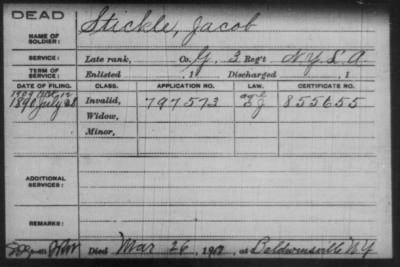 DEAD
NAME OF SOLDIER: Stickle, Jacob
SERVICE: Late rank, Co. G, 3 Reg't N.Y.L.A.
TERM OF SERVICE: Enlisted , 1 Discharged , 1
DATE OF FILING. CLASS. APPLICATION NO. LAW. CERTIFICATE NO.
1890 July 28 Invalid, 797572 855655
Widow,
Minor,
ADDITIONAL SERVICES:
REMARKS:
Died Mar 26, 19 , at Baldwinsville N.Y.